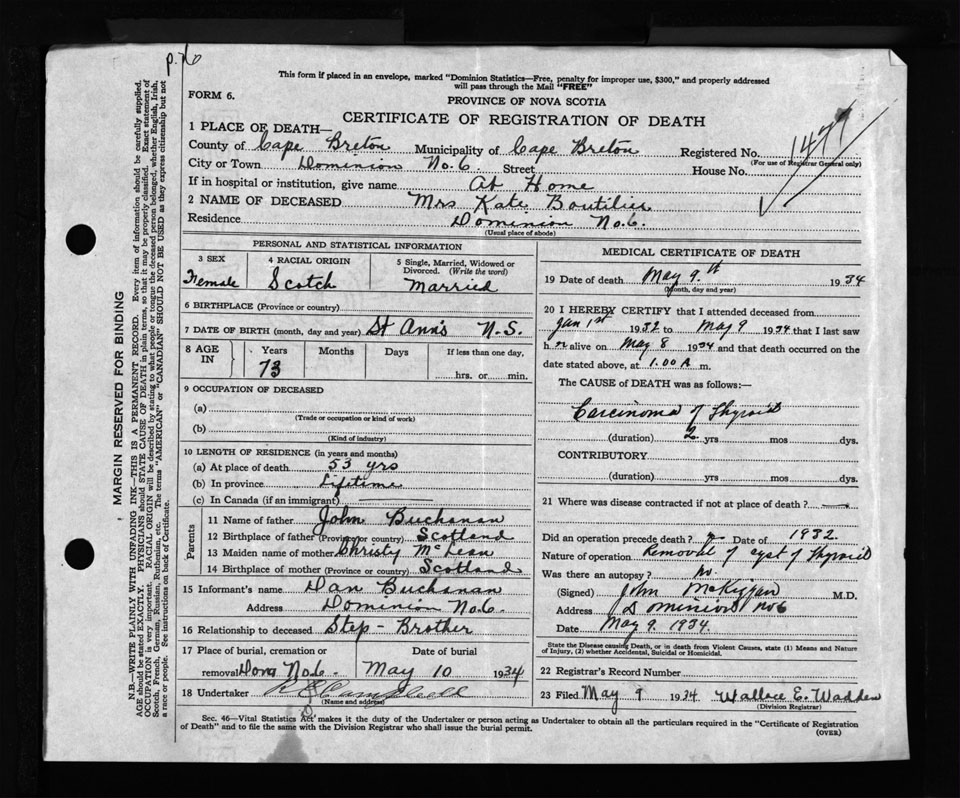 p. 70
This form if placed in an envelope, marked "Dominion Statistics—Free, penalty for improper use, $300," and properly addressed
will pass through the Mail "FREE"
FORM 6.
PROVINCE OF NOVA SCOTIA
CERTIFICATE OF REGISTRATION OF DEATH
1 PLACE OF DEATH—
County of Cape Breton Municipality of Cape Breton Registered No. 1477
(For use of Registrar General only)
City or Town Dominion No. 6 Street House No.
If in hospital or institution, give name At Home
2 NAME OF DECEASED Mrs Kate Boutilier
Residence Dominion No. 6.
(Usual place of abode)
PERSONAL AND STATISTICAL INFORMATION
3 SEX 4 RACIAL ORIGIN 5 Single, Married, Widowed or
Divorced. (Write the word)
Female Scotch Married
6 BIRTHPLACE (Province or country)
7 DATE OF BIRTH (month, day and year) St Ann's N.S.
8 AGE IN Years Months Days If less than one day,
73 hrs. or min.
9 OCCUPATION OF DECEASED
(a)
(Trade or occupation or kind of work)
(b)
(Kind of industry)
10 LENGTH OF RESIDENCE (in years and months)
(a) At place of death 53 yrs
(b) In province Lifetime
(c) In Canada (if an immigrant)
Parents
11 Name of father John Buchanan
12 Birthplace of father (Province or country) Scotland
13 Maiden name of mother Christy McLean
14 Birthplace of mother (Province or country) Scotland
15 Informant's name Dan Buchanan
Address Dominion No. 6.
16 Relationship to deceased Step-Brother
17 Place of burial, cremation or Date of burial
removal Dom No. 6. May 10 1934
18 Undertaker Campbell
(Name and address)
MEDICAL CERTIFICATE OF DEATH
19 Date of death May 9th 1934
(Month, day and year)
20 I HEREBY CERTIFY that I attended deceased from
Jan 1st 1932 to May 9 1934 that I last saw
h er alive on May 8 1934 and that death occurred on the
date stated above, at 1.00 A m.
The CAUSE of DEATH was as follows:—
Carcinoma of Thyroid
(duration) 2 yrs mos dys.
CONTRIBUTORY
(duration) yrs mos dys.
21 Where was disease contracted if not at place of death? —
Did an operation precede death? Date of 1932
Nature of operation Removal of cyst of Thyroid
Was there an autopsy? No.
(Signed) John M.D.
Address Dominion No 6
Date May 9. 1934.
State the Disease causing Death, or in death from Violent Causes, state (1) Means and Nature
of Injury, (2) whether Accidental, Suicidal or Homicidal.
22 Registrar's Record Number
23 Filed May 9 1934 Wallace E. Wadden
(Division Registrar)
Sec. 46—Vital Statistics Act makes it the duty of the Undertaker or person acting as Undertaker to obtain all the particulars required in the "Certificate of Registration
of Death" and to file the same with the Division Registrar who shall issue the burial permit.
(OVER)
MARGIN RESERVED FOR BINDING
N.B.—WRITE PLAINLY WITH UNFADING INK—THIS IS A PERMANENT RECORD. Every item of information should be carefully supplied.
AGE should be stated EXACTLY. PHYSICIANS should STATE CAUSE OF DEATH in plain terms, so that it may be properly classified. Exact statement of
OCCUPATION is very important. RACIAL ORIGIN will be described by stating to what people or tongue the deceased person belonged, whether English, Irish,
Scotch, French, German, Russian, Ruthenian, etc. The terms "AMERICAN" or "CANADIAN" SHOULD NOT BE USED as they express citizenship but not
a race or people. See instructions on back of Certificate.